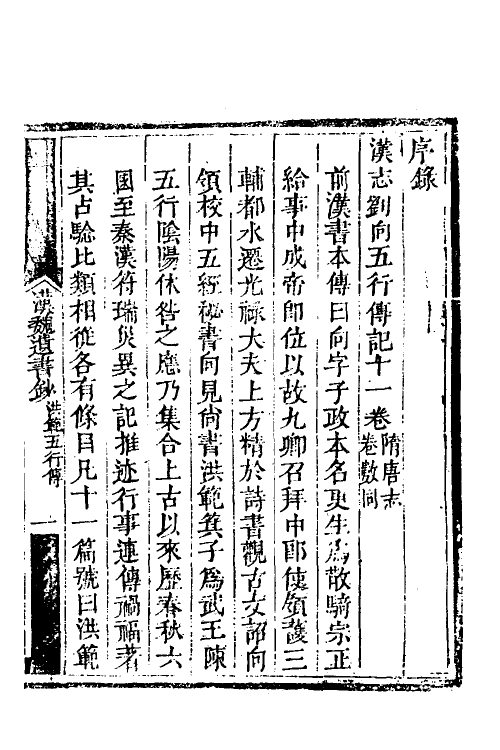 序錄
漢志劉向五行傳記十一卷隋唐志卷數同
前漢書本傳曰向字子政本名更生爲散騎宗正
給事中成帝即位以故九卿召拜中郎使領護三
輔都水遷光祿大夫上方精於詩書觀古文詔向
領校中五經秘書向見尚書洪範箕子爲武王陳
五行陰陽休咎之應乃集合上古以來歷春秋六
國至秦漢符瑞災異之記推迹行事連傳禍福著
其占驗比類相從各有條目凡十一篇號曰洪範
漢魏遺書鈔 洪範五行傳 一